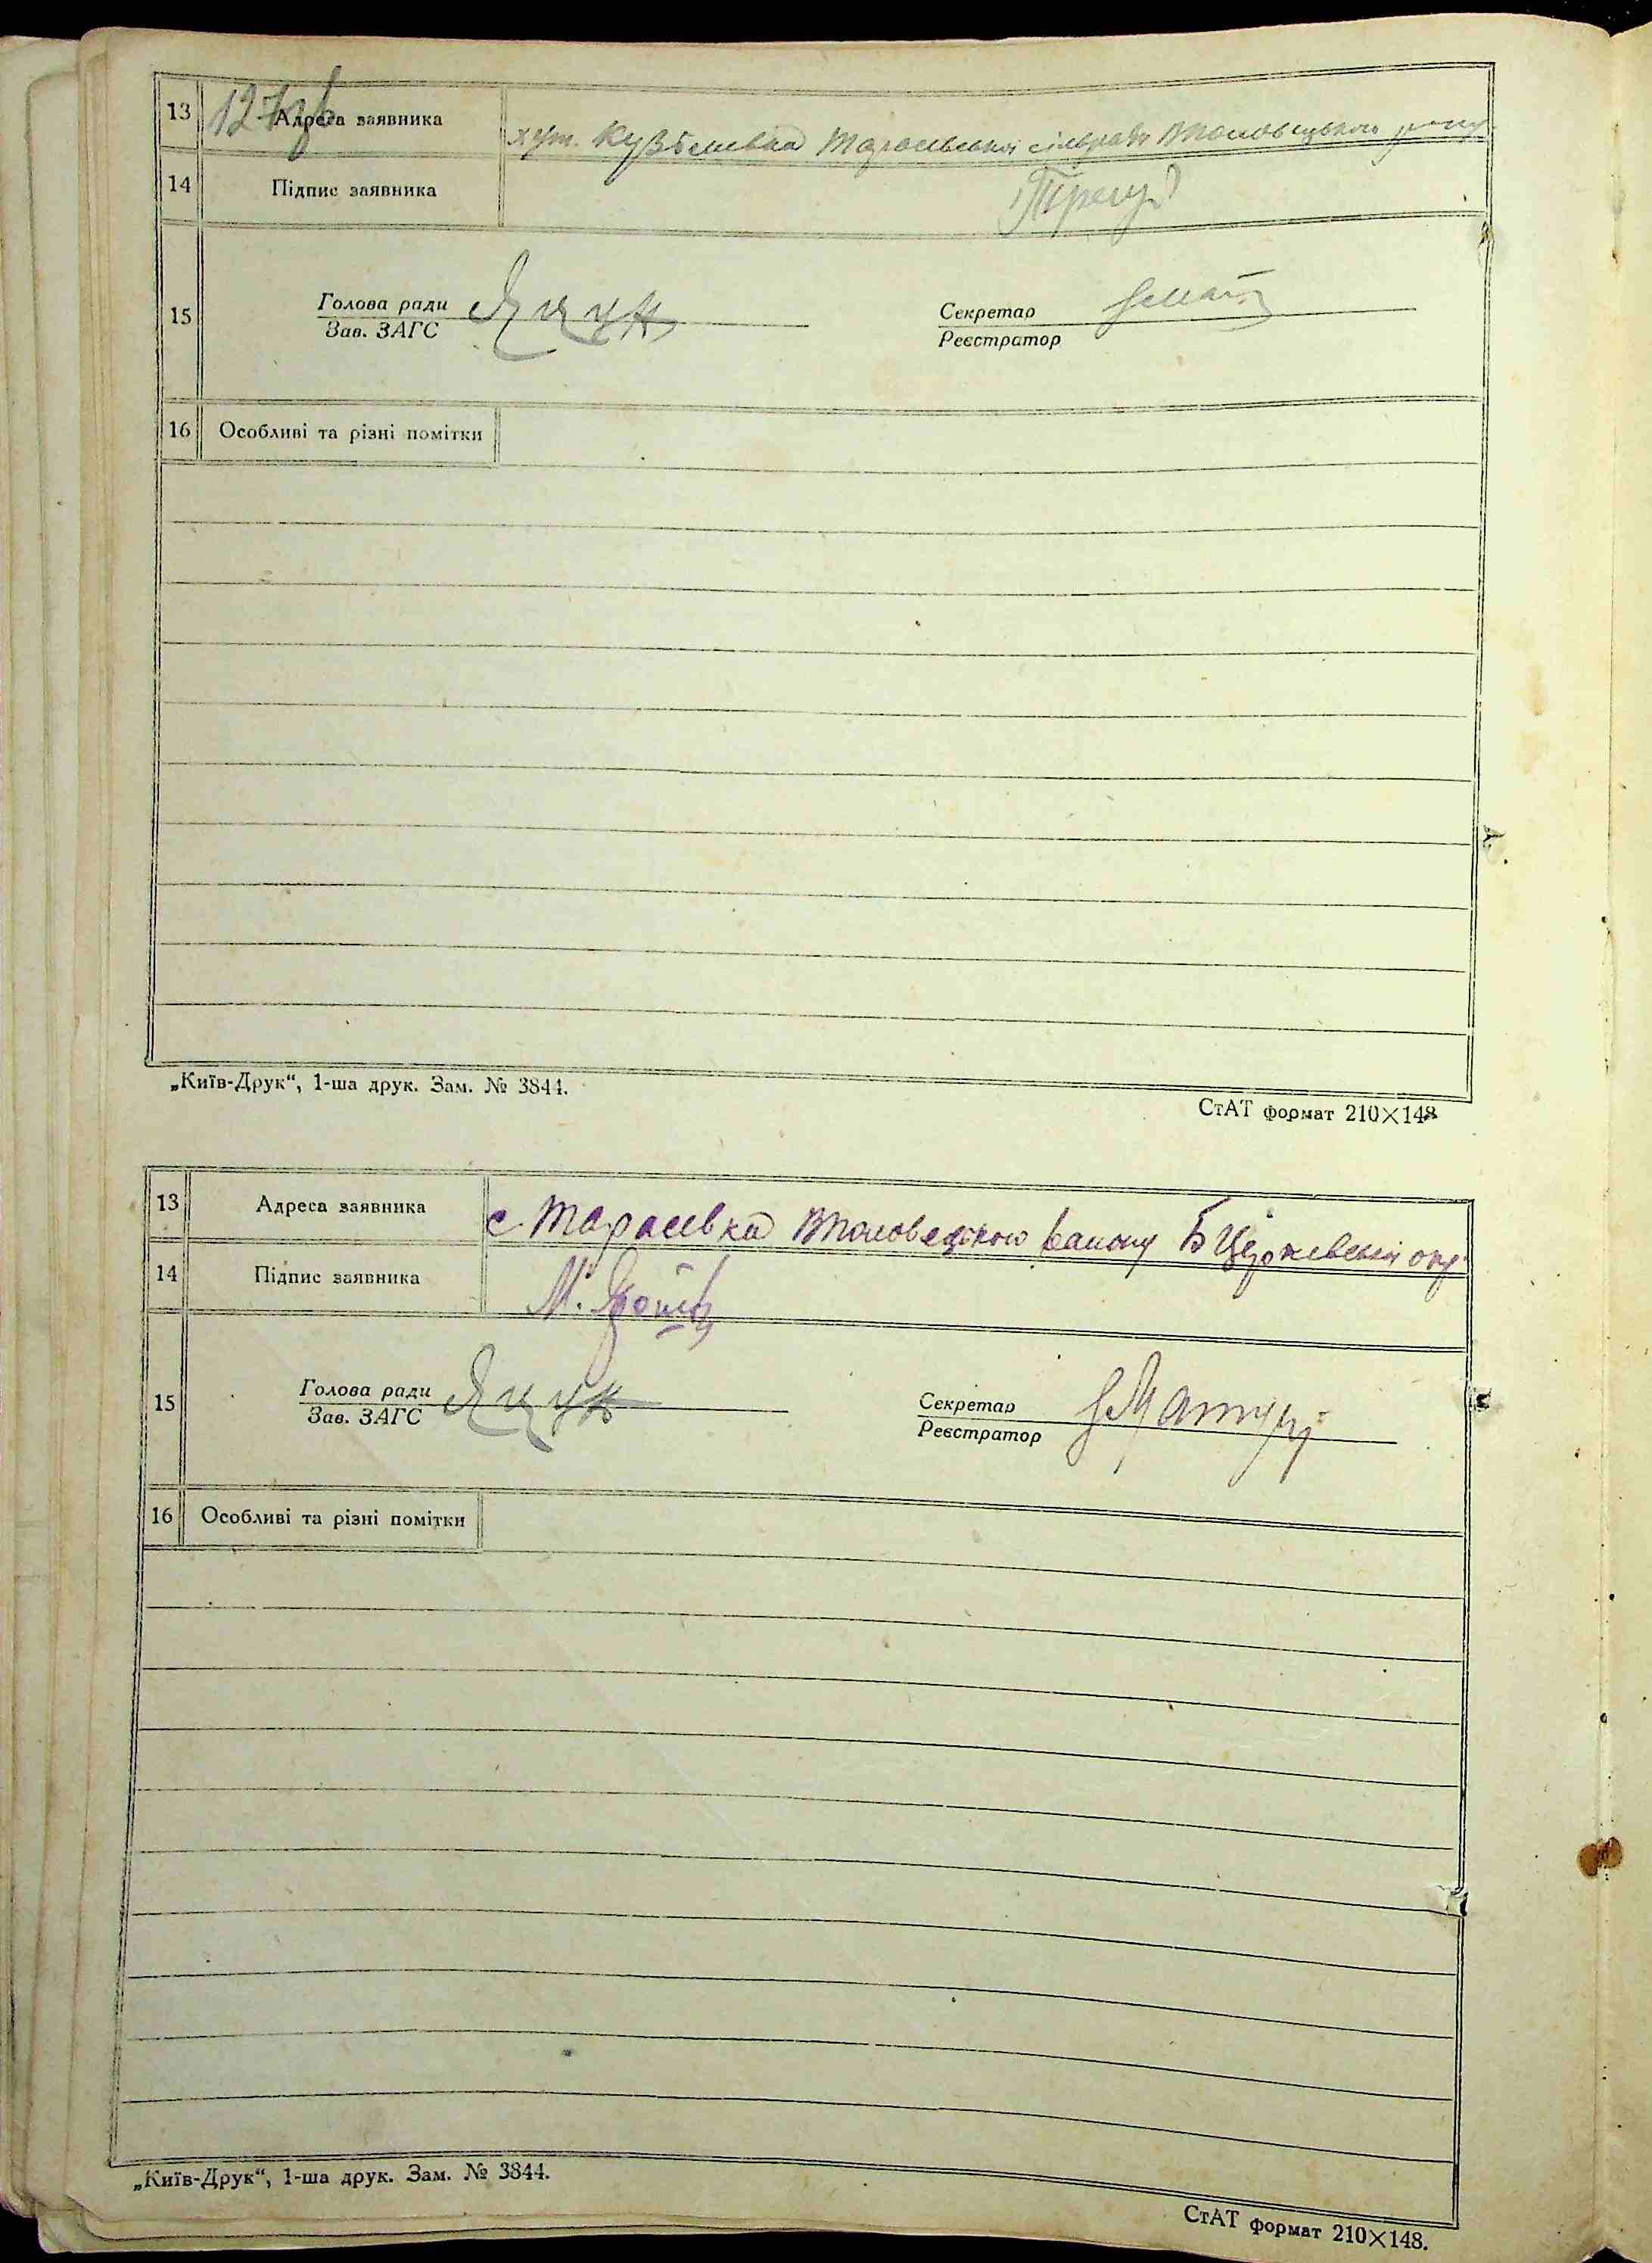 127зв
13 Адреса заявника хут. Кузьмивка Тарасівської сільради Вполовецького
14 Підпис заявника
15 Голова ради Яцук Секретар
Зав. ЗАГС Реєстратор
16 Особливі та різні помітки
„Київ-Друк“, 1-ша друк. Зам. № 3844.
СтАТ формат 210×148
13 Адреса заявника с. Тарасивка Вполовецького району БЦерківської окр.
14 Підпис заявника М.
15 Голова ради Яцук Секретар
Зав. ЗАГС Реєстратор
16 Особливі та різні помітки
„Київ-Друк“, 1-ша друк. Зам. № 3844.
СтАТ формат 210×148.